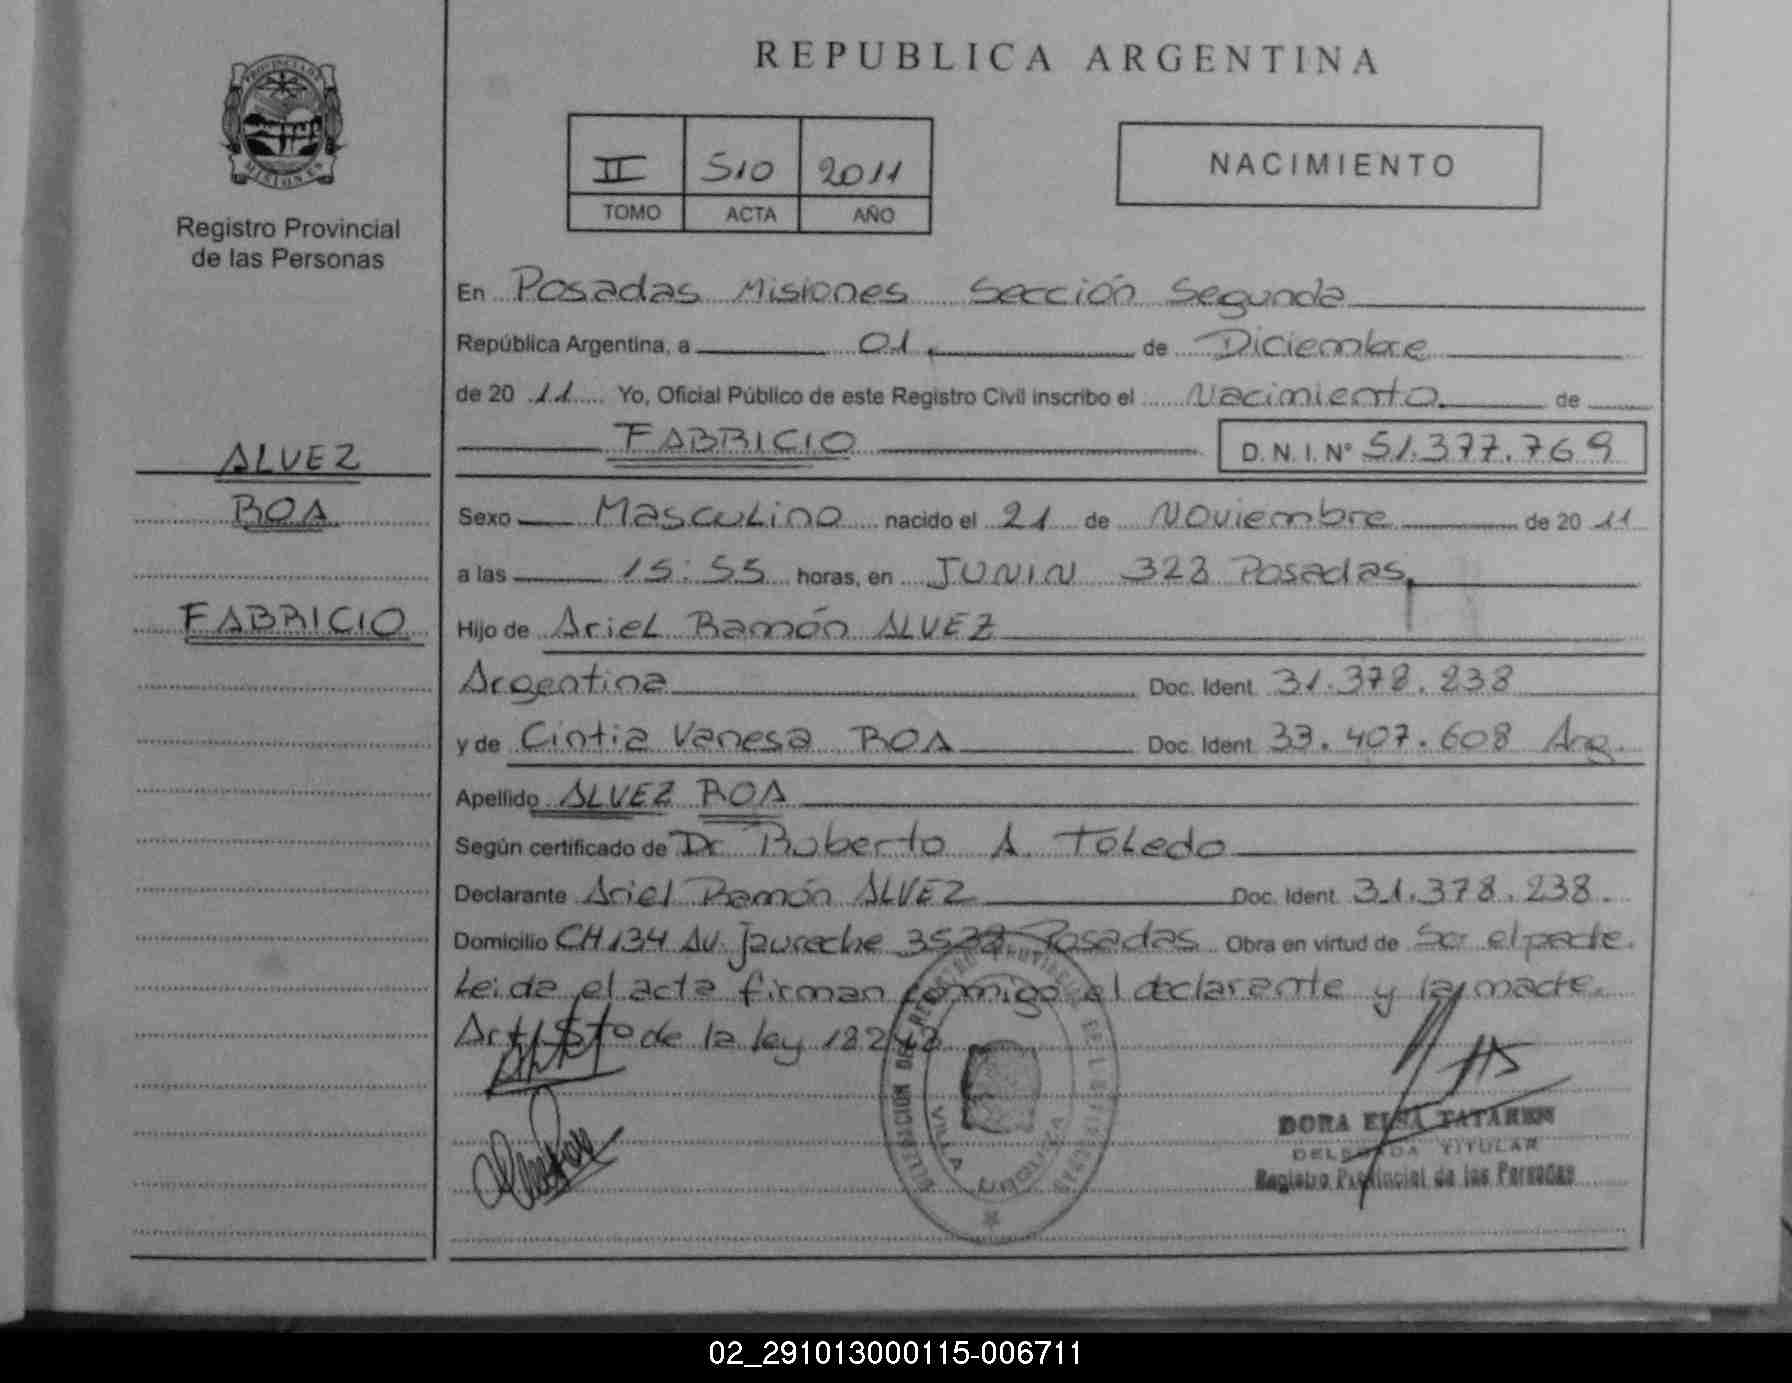 REPUBLICA ARGENTINA
PROVINCIA DE
MISIONES
Registro Provincial
de las Personas
II 510 2011
TOMO ACTA AÑO
NACIMIENTO
En Posadas Misiones Sección Segunda
República Argentina, a 01 de Diciembre
de 20 11 Yo, Oficial Público de este Registro Civil inscribo el Nacimiento de
FABRICIO D. N. I. Nº 51.377.769
ALVEZ
BOA
FABRICIO
Sexo Masculino nacido el 21 de Noviembre de 20 11
a las 15:55 horas, en JUNIN 323 Posadas,
Hijo de Ariel Ramón ALVEZ
Argentina Doc. Ident. 31.378.238
y de Cintia Vanesa BOA Doc. Ident. 33.407.608 Arg.
Apellido ALVEZ BOA
Según certificado de Dr Roberto A. Toledo
Declarante Ariel Ramón ALVEZ Doc. Ident. 31.378.238.
Domicilio CH 134 Av. Jaureche Posadas Obra en virtud de Ser el padre.
Leida el acta firman conmigo el declarante y la madre.
Art. 5to de la ley 18248
DELEGACION DEL REGISTRO PROVINCIAL DE LAS PERSONAS
VILLA
DORA ELSA TATAREN
DELEGADA TITULAR
Registro Provincial de las Personas
02_291013000115-006711